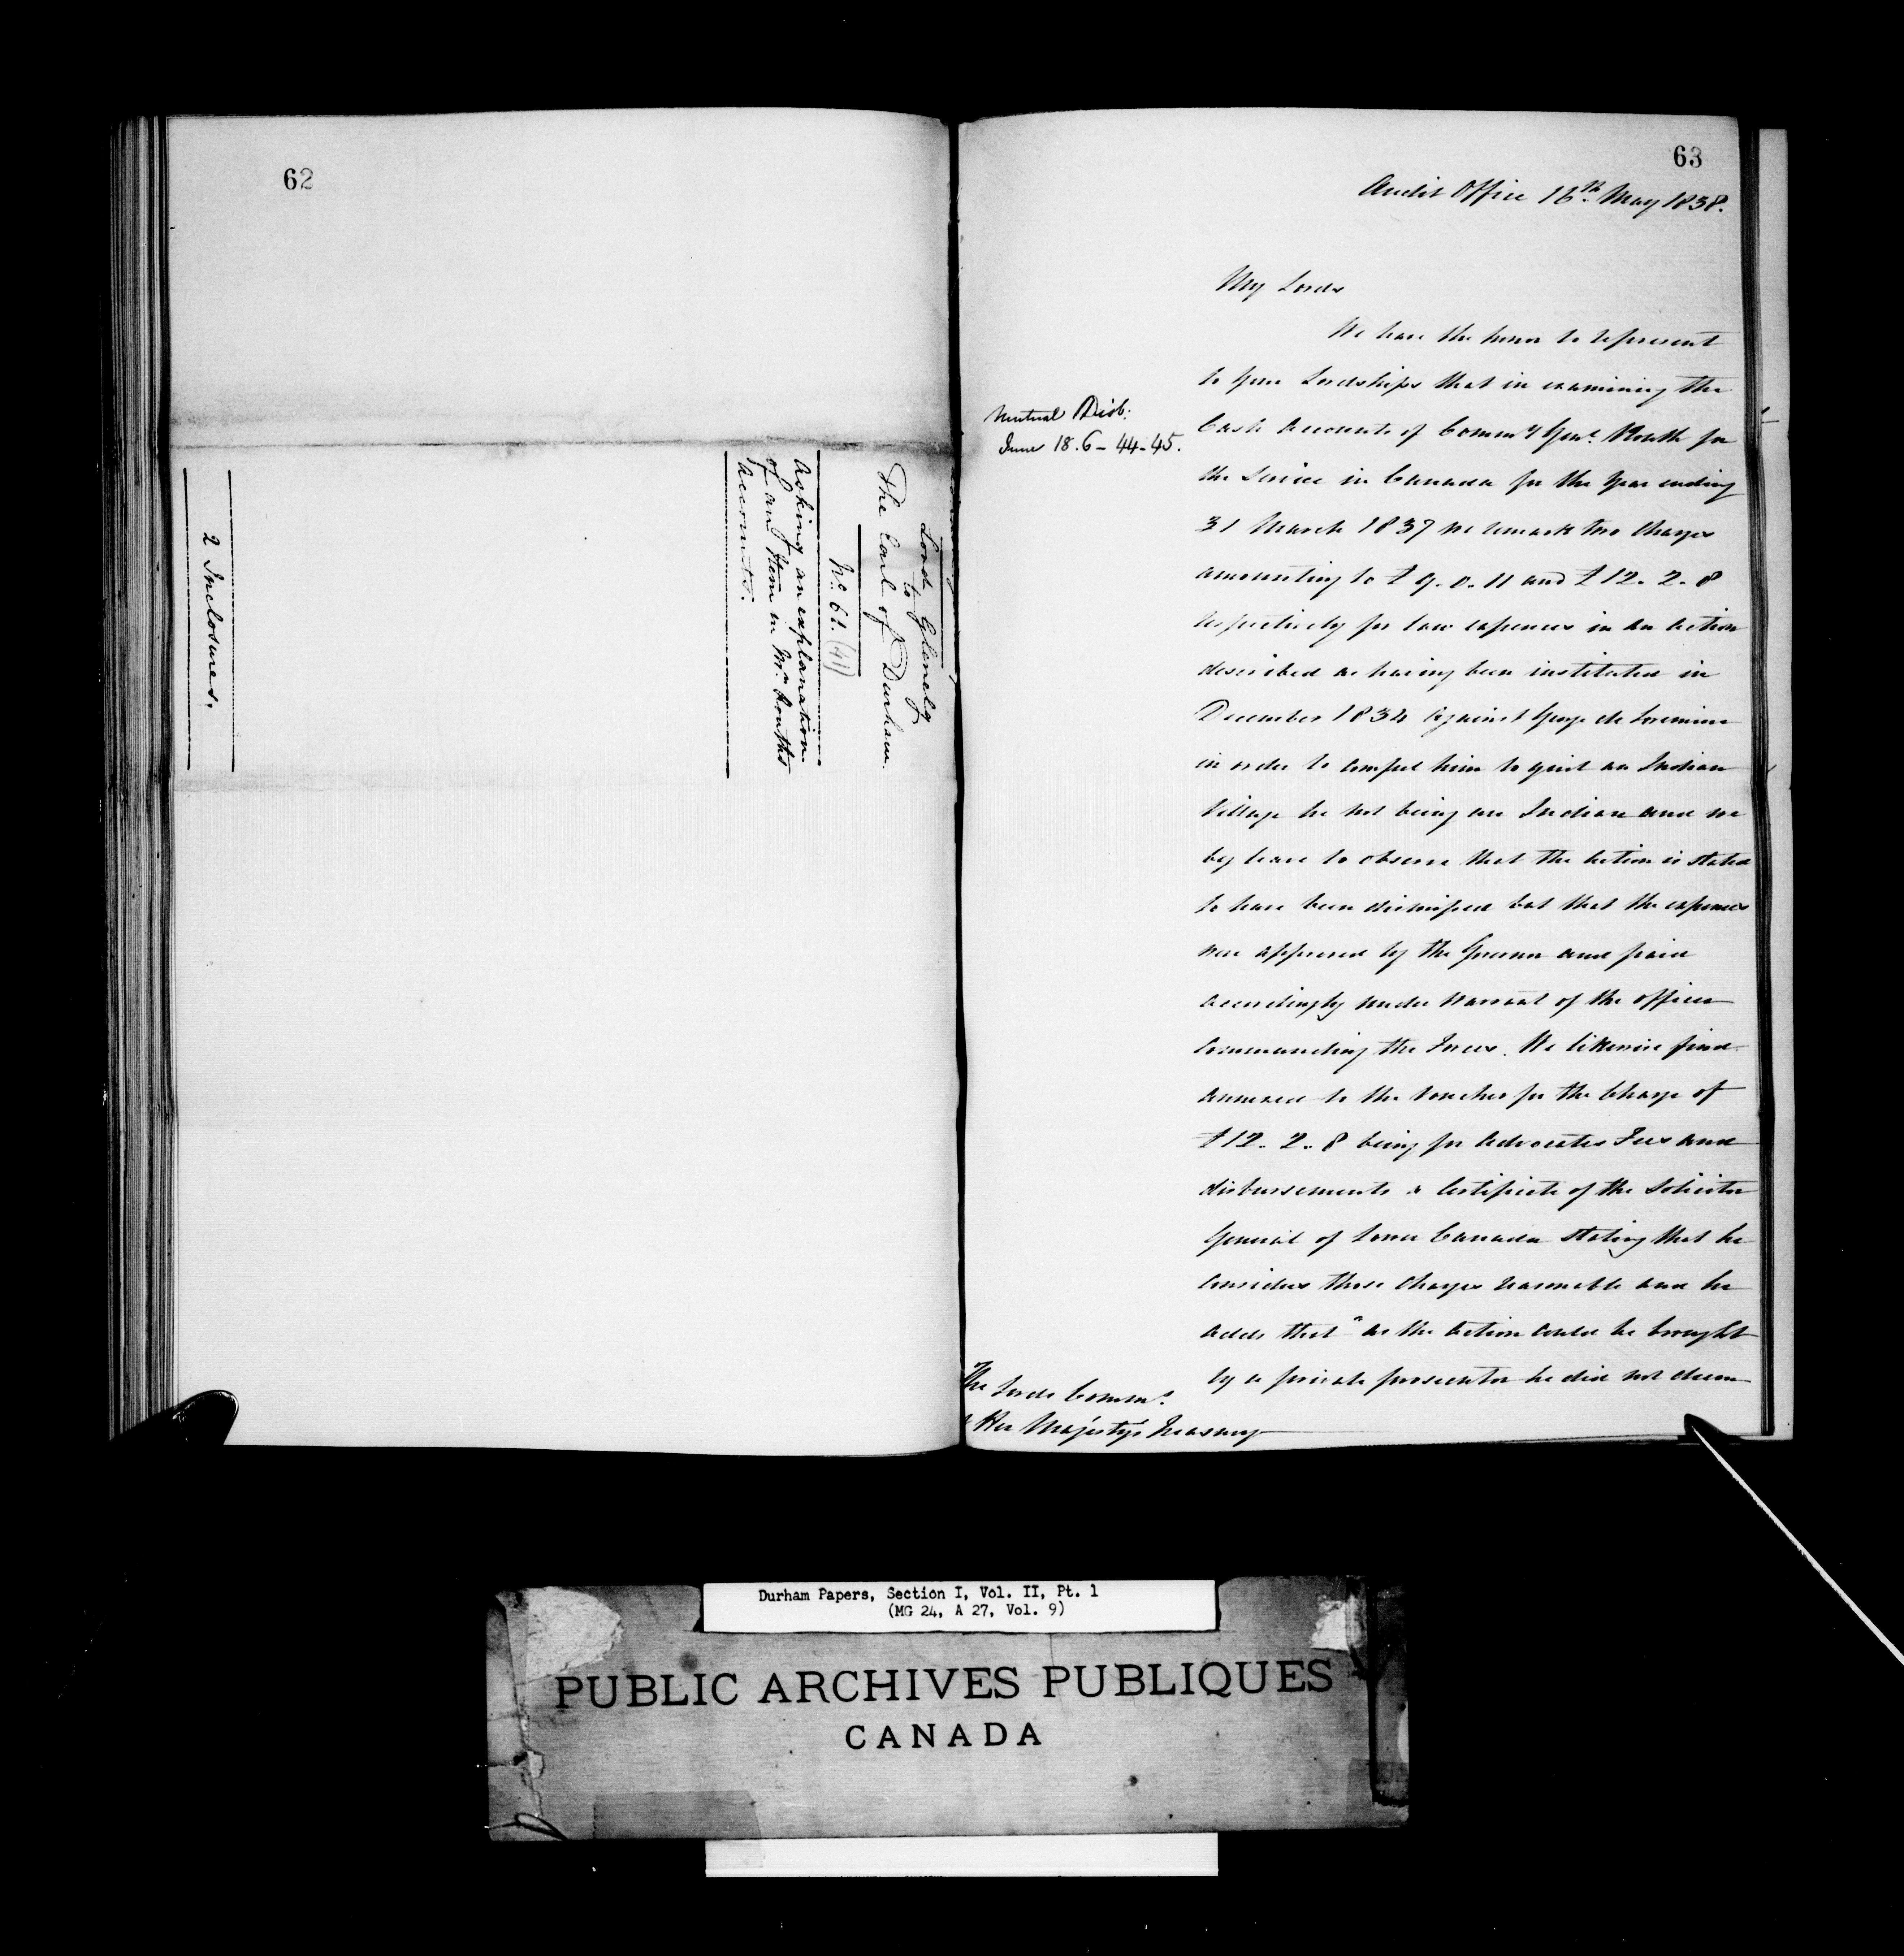 62
Lord Glenelg
to
The Earl of Durham.
No. 61. (41)
Asking an explanation
of an Item in Mr. Rouths
Accounts.
2 Inclosures.
63
Audit Office 16th. May 1838.
My Lords
We have the honor to represent
to your Lordships that in examining the
Cash Accounts of Commy Genl. Routh for
the Service in Canada for the Year ending
31 March 1837 we remark two Charges
amounting to £9.0.11 and £12.2.8
respectively for law expences in an Action
described as having been instituted in
December 1834 against George de Lorimier
in order to compel him to quit an Indian
Village he not being an Indian and we
beg leave to observe that the Action is stated
to have been dismissed but that the expences
were approved by the Governor and paid
accordingly under Warrant of the Officer
Commanding the Forces. We likewise find
annexed to the Voucher for the Charge of
£12.2.8 being for Advocates Fees and
disbursements a Certificate of the Solicitor
General of Lower Canada stating that he
considers those Charges reasonable and he
adds that "as the Action could be brought
by a private prosecutor he did not deem
June 18.6-44-45.
The Lords Commrs.
Her Majesty's Treasury
Durham Papers, Section I, Vol. II, Pt. 1
(MG 24, A 27, Vol. 9)
PUBLIC ARCHIVES PUBLIQUES
CANADA